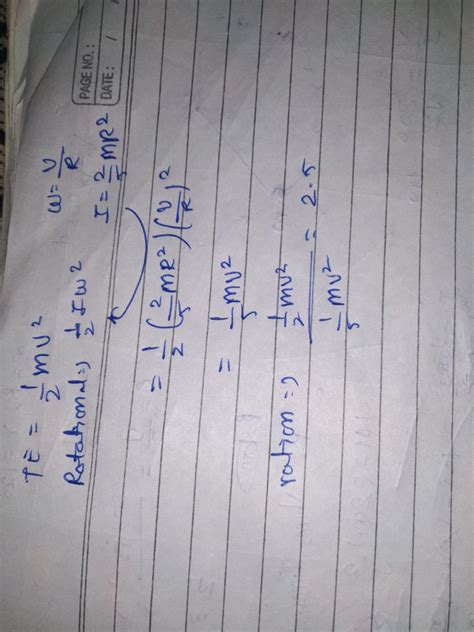 PAGE NO.:
DATE: / /
TE = 1/2 mv²
Rotational => 1/2 Iω²
ω = v/R
I = 2/5 mR²
= 1/2 (2/5 mR²)(v/R)²
= 1/5 mv²
ration => (1/2 mv²)/(1/5 mv²) = 2.5